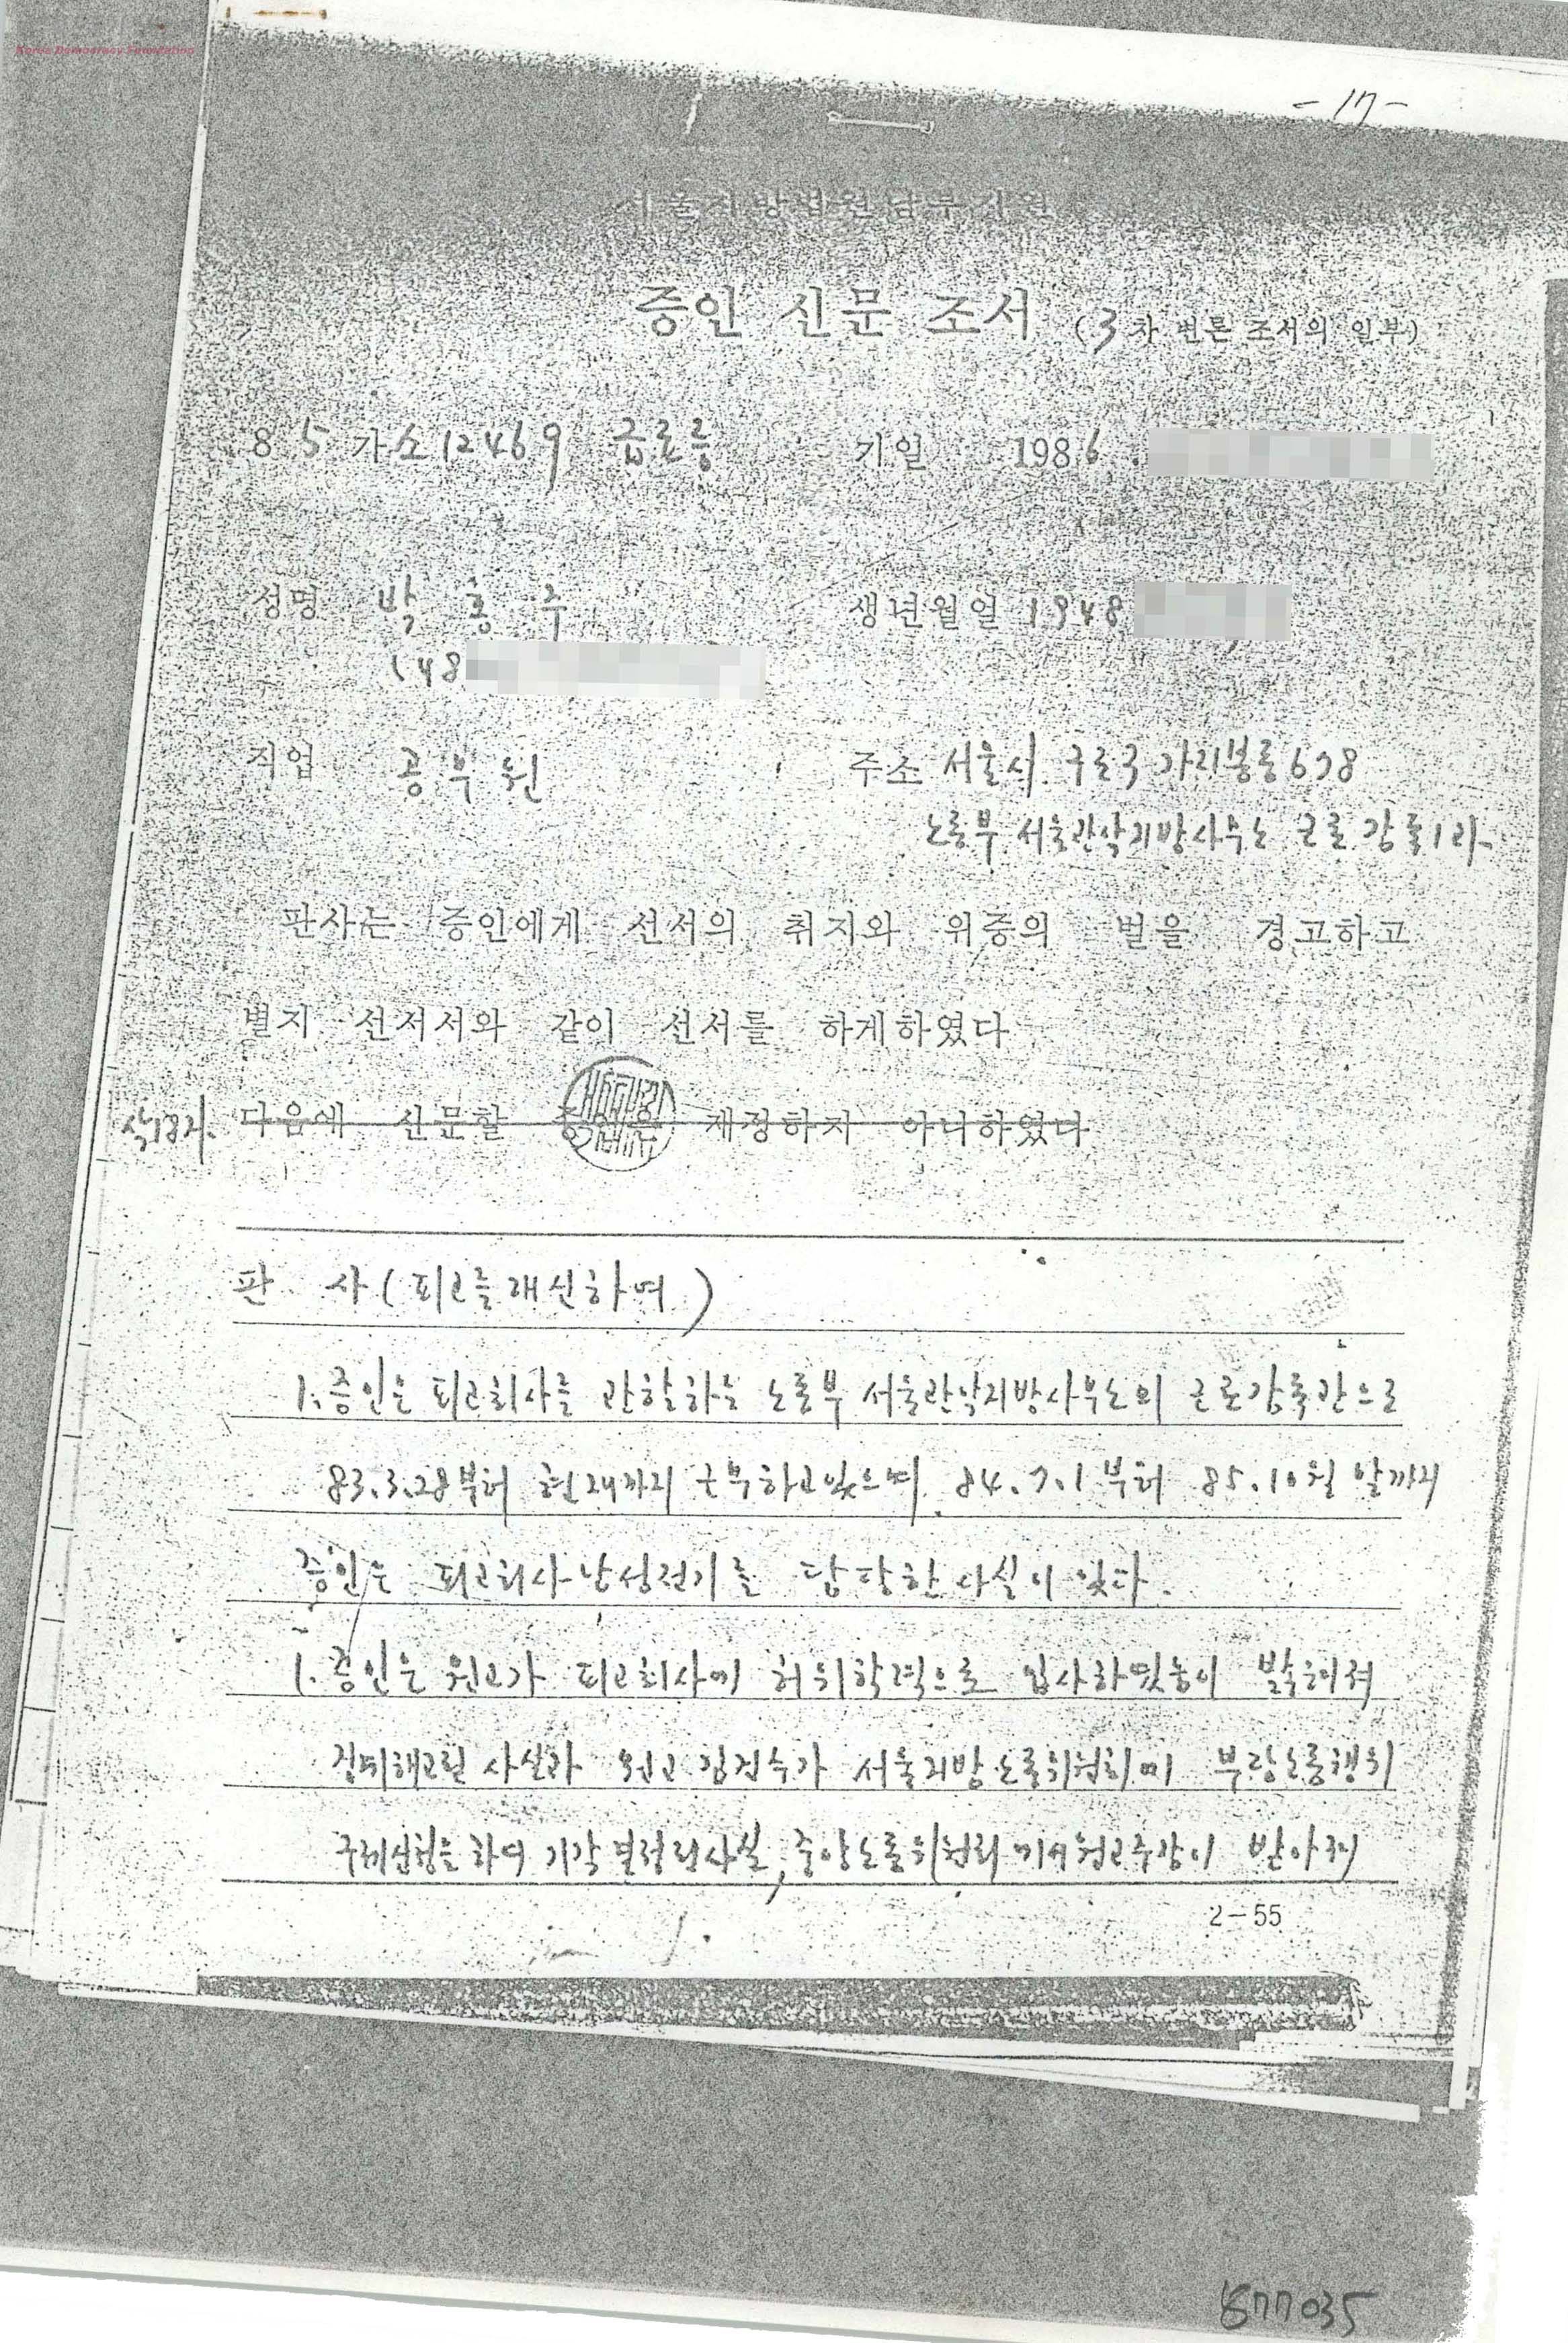 Korea Democracy Foundation
- 17 -
서울지방법원남부지원
증인 신문 조서 (3차 변론 조서의 일부)
85 가소12469 급료등 기일 1986.
성명 박 홍 주 생년월일 1948
(48
직업 공무원 주소 서울시 구로구 가리봉동 678
노동부 서울관악지방사무소 근로감독1과
판사는 증인에게 선서의 취지와 위증의 벌을 경고하고
별지 선서서와 같이 선서를 하게하였다
삭18자 다음에 신문할 증인은 재정하지 아니하였다
판 사 (피고를 대신하여)
1. 증인은 피고회사를 관할하는 노동부 서울관악지방사무소의 근로감독관으로
83.3.28부터 현재까지 근무하고있으며 84.7.1부터 85.10월말까지
증인은 피고회사 남성전기를 담당한 사실이 있다.
1. 증인은 원고가 피고회사에 허위학력으로 입사하였음이 밝혀져
징계해고된 사실과 원고 김 가 서울지방노동위원회에 부당노동행위
구제신청을 하여 기각결정된사실, 중앙노동위원회에서 원고주장이 받아져
2-55
577035